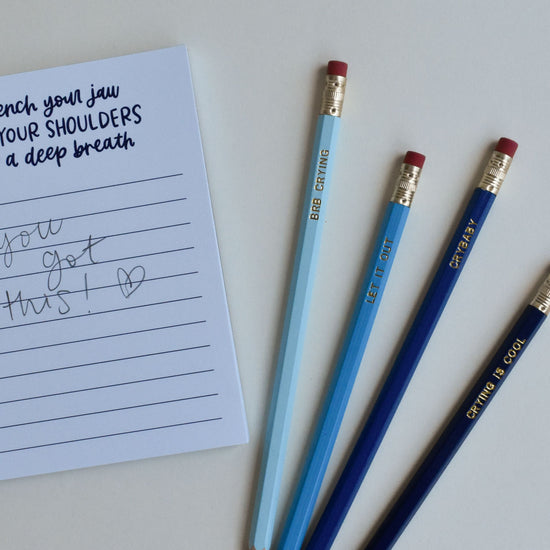 ench your jaw
YOUR SHOULDERS
a deep breath
you
got
this!
BRB CRYING
LET IT OUT
CRYBABY
CRYING IS COOL